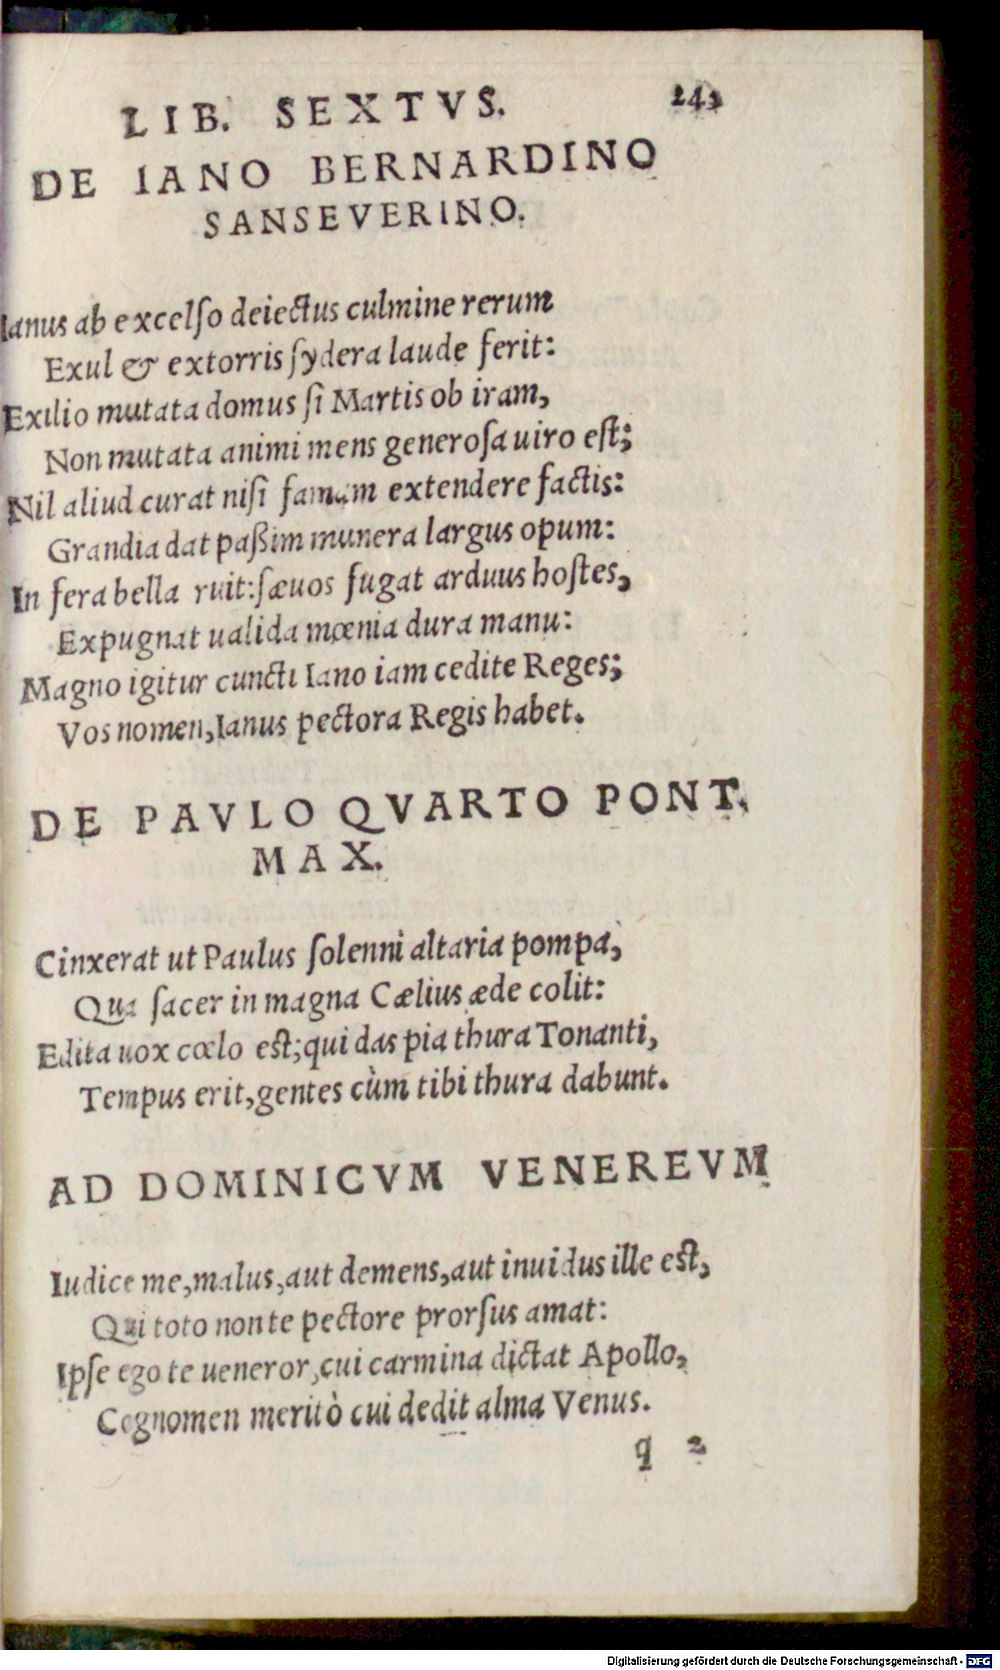 LIB. SEXTVS. 243
DE IANO BERNARDINO
SANSEVERINO.
Ianus ab excelſo deiectus culmine rerum
Exul & extorris ſydera laude ferit:
Exilio mutata domus ſi Martis ob iram,
Non mutata animi mens generoſa uiro eſt;
Nil aliud curat niſi famam extendere factis:
Grandia dat paßim munera largus opum:
In fera bella ruit: ſæuos fugat arduus hoſtes,
Expugnat ualida mœnia dura manu:
Magno igitur cuncti Iano iam cedite Reges;
Vos nomen, Ianus pectora Regis habet.
DE PAVLO QVARTO PONT.
MAX.
Cinxerat ut Paulus ſolenni altaria pompa,
Qua ſacer in magna Cælius æde colit:
Edita uox cœlo eſt; qui das pia thura Tonanti,
Tempus erit, gentes cùm tibi thura dabunt.
AD DOMINICVM VENEREVM
Iudice me, malus, aut demens, aut inuidus ille eſt,
Qui toto non te pectore prorſus amat:
Ipſe ego te ueneror, cui carmina dictat Apollo,
Cognomen meritò cui dedit alma Venus.
q 2
Digitalisierung gefördert durch die Deutsche Forschungsgemeinschaft - DFG